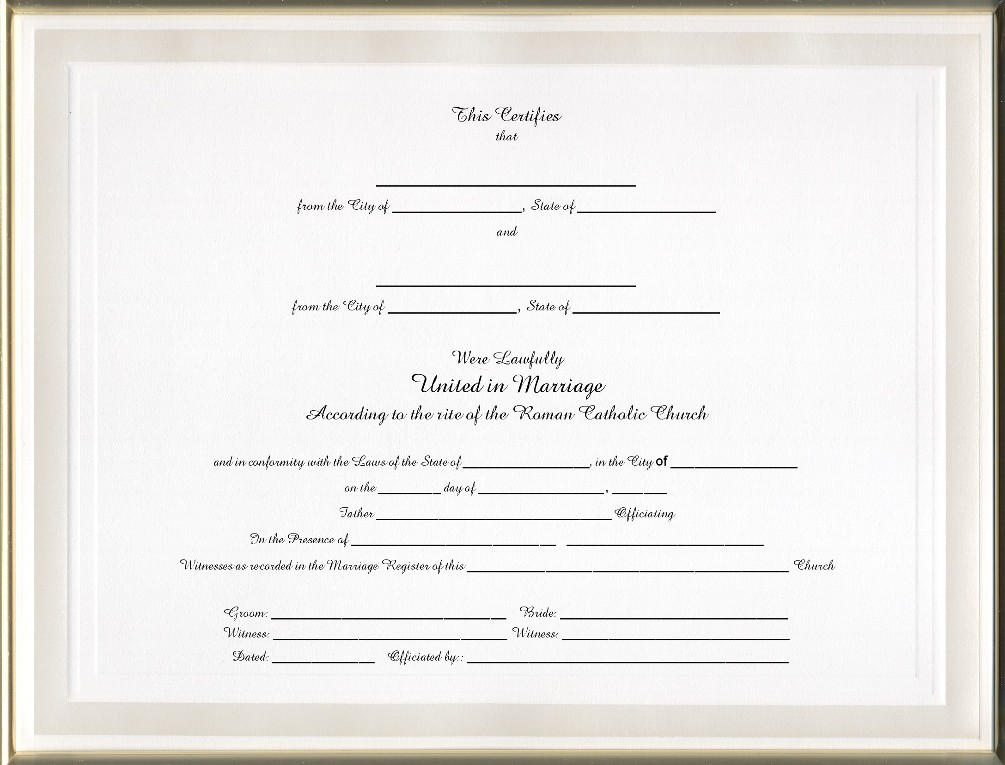 This Certifies
that
____________________
from the City of __________, State of __________
and
____________________
from the City of __________, State of __________
Were Lawfully
United in Marriage
According to the rite of the Roman Catholic Church
and in conformity with the Laws of the State of __________, in the City of __________
on the _____ day of __________, ____
Father __________________ Officiating
In the Presence of ________________ ________________
Witnesses as recorded in the Marriage Register of this _________________________ Church
Groom: __________________ Bride: __________________
Witness: __________________ Witness: __________________
Dated: ________ Officiated by:: _________________________